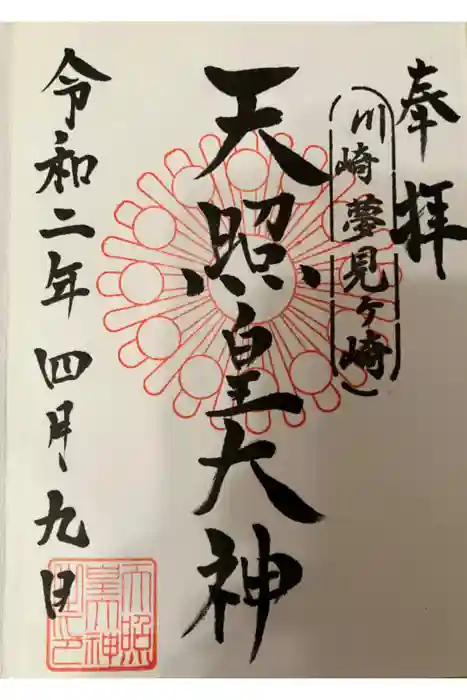 奉拝
川崎夢見ヶ崎
天照皇大神
令和二年四月九日
天照
皇大神